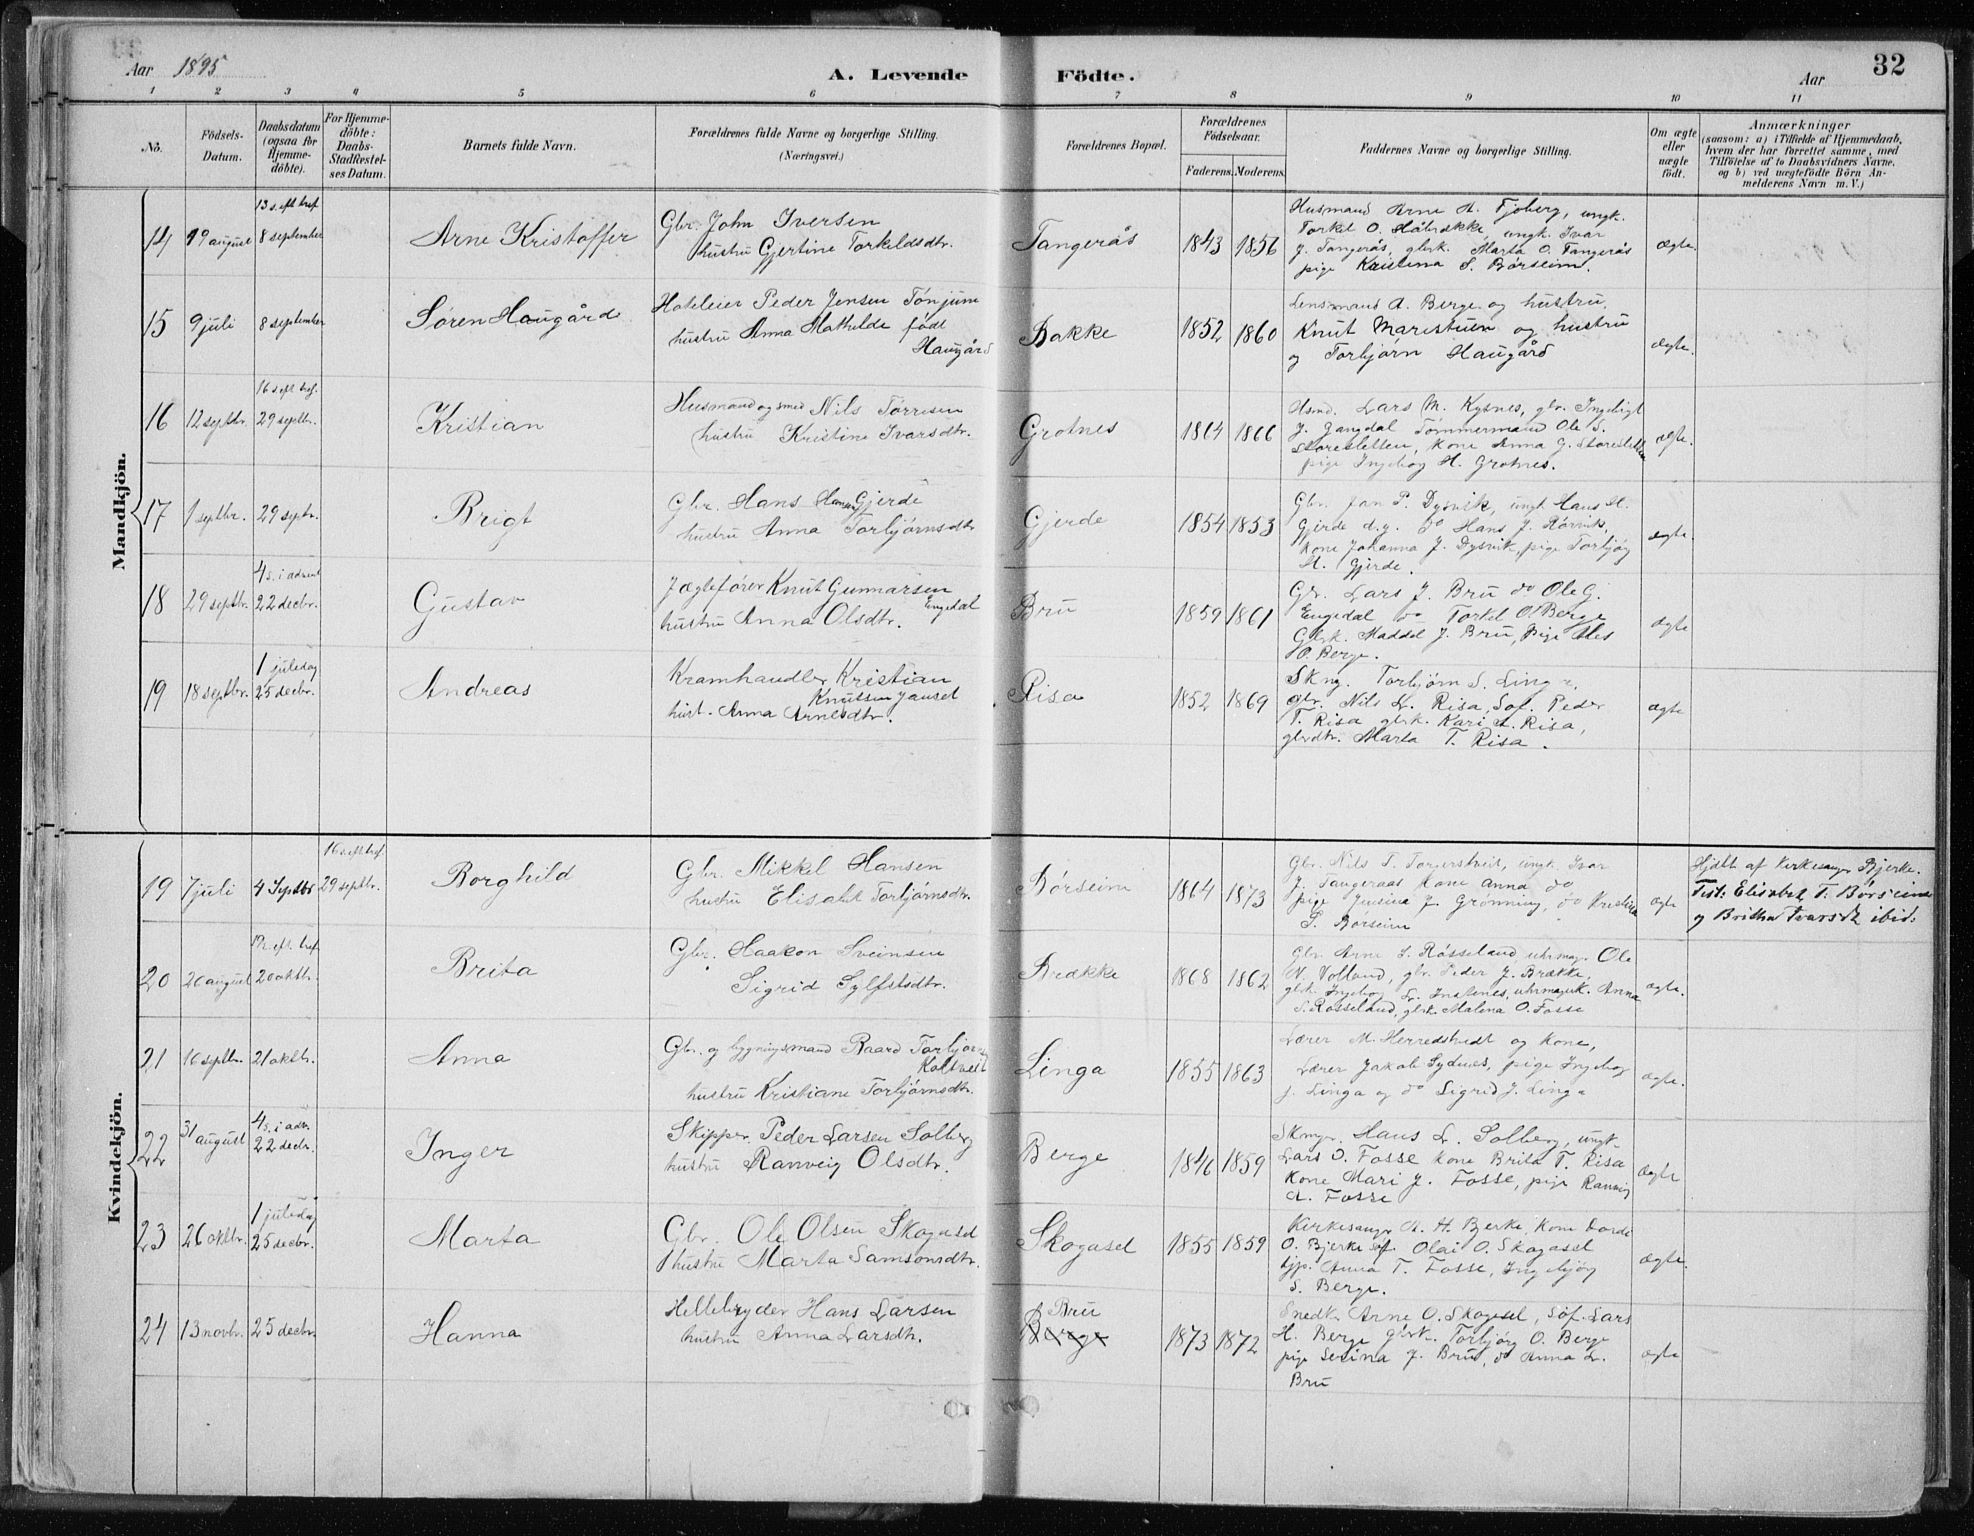 Aar 1895
A. Levende Födte.
Aar
32
1 2 3 4 5 6 7 8 9 10 11
No.
Födsels-Datum.
Daabsdatum (ogsaa for Hjemme-döbte).
For Hjemme-döbte: Daabs-Stadfæstel-ses Datum.
Barnets fulde Navn.
Forældrenes fulde Navne og borgerlige Stilling. (Næringsvei.)
Forældrenes Bopæl.
Forældrenes Födselsaar.
Faderens. Moderens.
Faddernes Navne og borgerlige Stilling.
Om ægte eller uægte födt.
Anmærkninger
(saasom: a) i Tilfælde af Hjemmedaab, hvem der har forrettet samme, med Tilföielse af to Daabsvidners Navne, og b) ved uægtefödte Börn An-melderens Navn m. V.)
Mandkjön.
13 s. eft. tref.
14 19 august 8 september Arne Kristoffer
Gbr. John Iversen
hustru Gjertine Torkeldsdtr.
Tangerås 1843 1856
Husmand Arne A. Fjøberg, ungk.
Torkel O. Håbrække, ungk. Ivar
J. Tangerås, gbrk. Marta O. Tangerås
pige Kristina S. Børseim.
ægte.
15 9 juli 8 september Søren Haugård
Hoteleier Peder Jensen Tönjum
hustru Anna Mathilde født
Haugård
Bakke 1852 1860
Lensmand A. Berge og hustru,
Knut Maristuen og hustru
og Torbjørn Haugård
ægte.
16 s. eft. tref.
16 12 septbr. 29 septbr. Kristian
Husmand og smed Nils Tørresen
hustru Kristine Ivarsdtr.
Grotnes 1864 1866
Hsmd. Lars M. Kysnes, gbr. Ingebrigt
J. Gangdal Tømmermand Ole S.
Storesletten, Kone Anna G. Storesletten
pige Ingebog H. Grotnes.
ægte.
17 1 septbr. 29 septbr. Brigt
Gbr. Hans Hansen Gjerde
hustru Anna Torbjørnsdtr
Gjerde 1854 1853
Gbr. Jan P. Dysvik, ungk. Hans H.
Gjerde d.y. do Hans J. Rørvik,
kone Johanna J. Dysvik, pige Torbjög
H. Gjerde.
ægte.
4 s. i advent
18 29 septbr. 22 decbr. Gustav
Jægtefører Knut Gunnarsen
Engedal
hustru Anna Olsdtr.
Bru 1859 1861
Gbr. Lars J. Bru do Ole G.
Engedal do Torkel O. Berge
Gbrk. Maddel J. Bru, pige
O. Berge.
ægte
1 juledag
19 18 septbr. 25 decbr. Andreas
Kramhandler Kristian
Knutsen Jansel
hust. Anna Arnesdtr.
Risa 1852 1869
Skng. Torbjørn S. Linga,
gbr. Nils L. Risa, Søf. Peder
T. Risa gbrk. Kari A. Risa,
gbrdtr. Marta T. Risa.
ægte
Kvindekjön.
16 s. eft. tref.
19 7 juli 4 Septbr 29 septbr. Borghild
Gbr. Mikkel Hansen
hustru Elisabet Torbjørnsdtr.
Børseim 1864 1873
Gbr. Nils T. Torgerstveit, ungk. Ivar
J. Tangeraas Kone Anna do
pige Jensina J. Grønning, do Kristina
S. Børseim
ægte
Hjdbt af Kirkesanger Bjerke.
Test: Elisabet T. Børseim
og Britha Ivarsdt ibid:
20 20 august 20 oktbr. Brita
Gbr. Haakon Sveinsen
Sigrid Sylfestsdtr.
Brække 1868 1862
Gbr. Arne S. Røsseland, uhrmag. Ole
N. Volland, gbr. Peder J. Brække,
gbrk. Ingebog L. Instenes, uhrmagerk. Anna
S. Røsseland, gbrk. Malena O. Fosse
ægte.
21 16 septbr. 21 oktbr. Anna
Gbr. og bygningsmand Baard Torbjørns
Koltveit
hustru Kristiane Torbjørnsdtr.
Linga 1855 1863
Lærer M. Herredstvedt og kone,
Lærer Jakob Sydnes, pige Ingebog
J. Linga og do Sigrid J. Linga
ægte.
4 s. i adv.
22 31 august 22 decbr. Inger
Skipper Peder Larsen Solberg
hustru Ranveig Olsdtr.
Berge 1846 1859
Skinger. Hans L. Solberg, ungk.
Lars O. Fosse kone Brita T. Risa
kone Mari J. Fosse, pige Ranveig
A. Fosse
ægte
1 juledag
23 26 oktbr. 25 decbr. Marta
Gbr. Ole Olsen Skogasel
hustru Marta Samsonsdtr.
Skogasel 1855 1859
Kirkesanger A. H. Bjerke, kone Dordi
O. Bjerke Søf. Olai O. Skogasel
tjp. Anna T. Fosse, Ingebjög
S. Berge.
ægte.
24 13 novbr. 25 decbr. Hanna
Hellebryder Hans Larsen
hustru Anna Larsdtr.
Bru
Berge 1873 1872
Snedk. Arne O. Skogasel, Søf. Lars
H. Berge gbrk. Torbjörg O. Berge
pige Serina J. Bru, do Anna L.
Bru
ægte